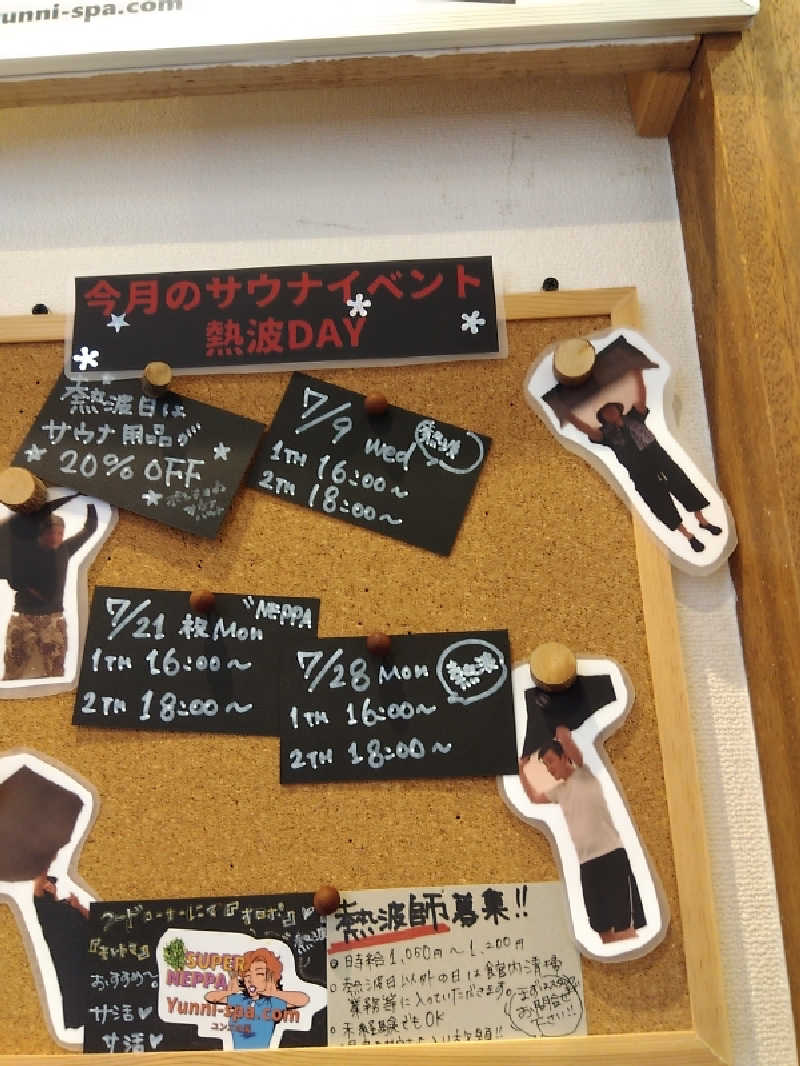 unni-spa.com
今月のサウナイベント
熱波DAY
熱波日は
サウナ用品が
20% OFF
7/9 Wed 熱波
1TH 16:00〜
2TH 18:00〜
7/21 祝Mon "NEPPA
1TH 16:00〜
2TH 18:00〜
7/28 Mon 熱波
1TH 16:00〜
2TH 18:00〜
フードコーナーにて『オロポ』
おすすめ〜。
サ活♡
サ活♡
SUPER
NEPPA
Yunni-spa.com
ユンニの湯
熱波師募集!!
時給1,050円〜1,200円
熱波日以外の日は館内清掃
業務等に入っていただきます。
未経験でもOK
まずは
お問合せ
下さい!!